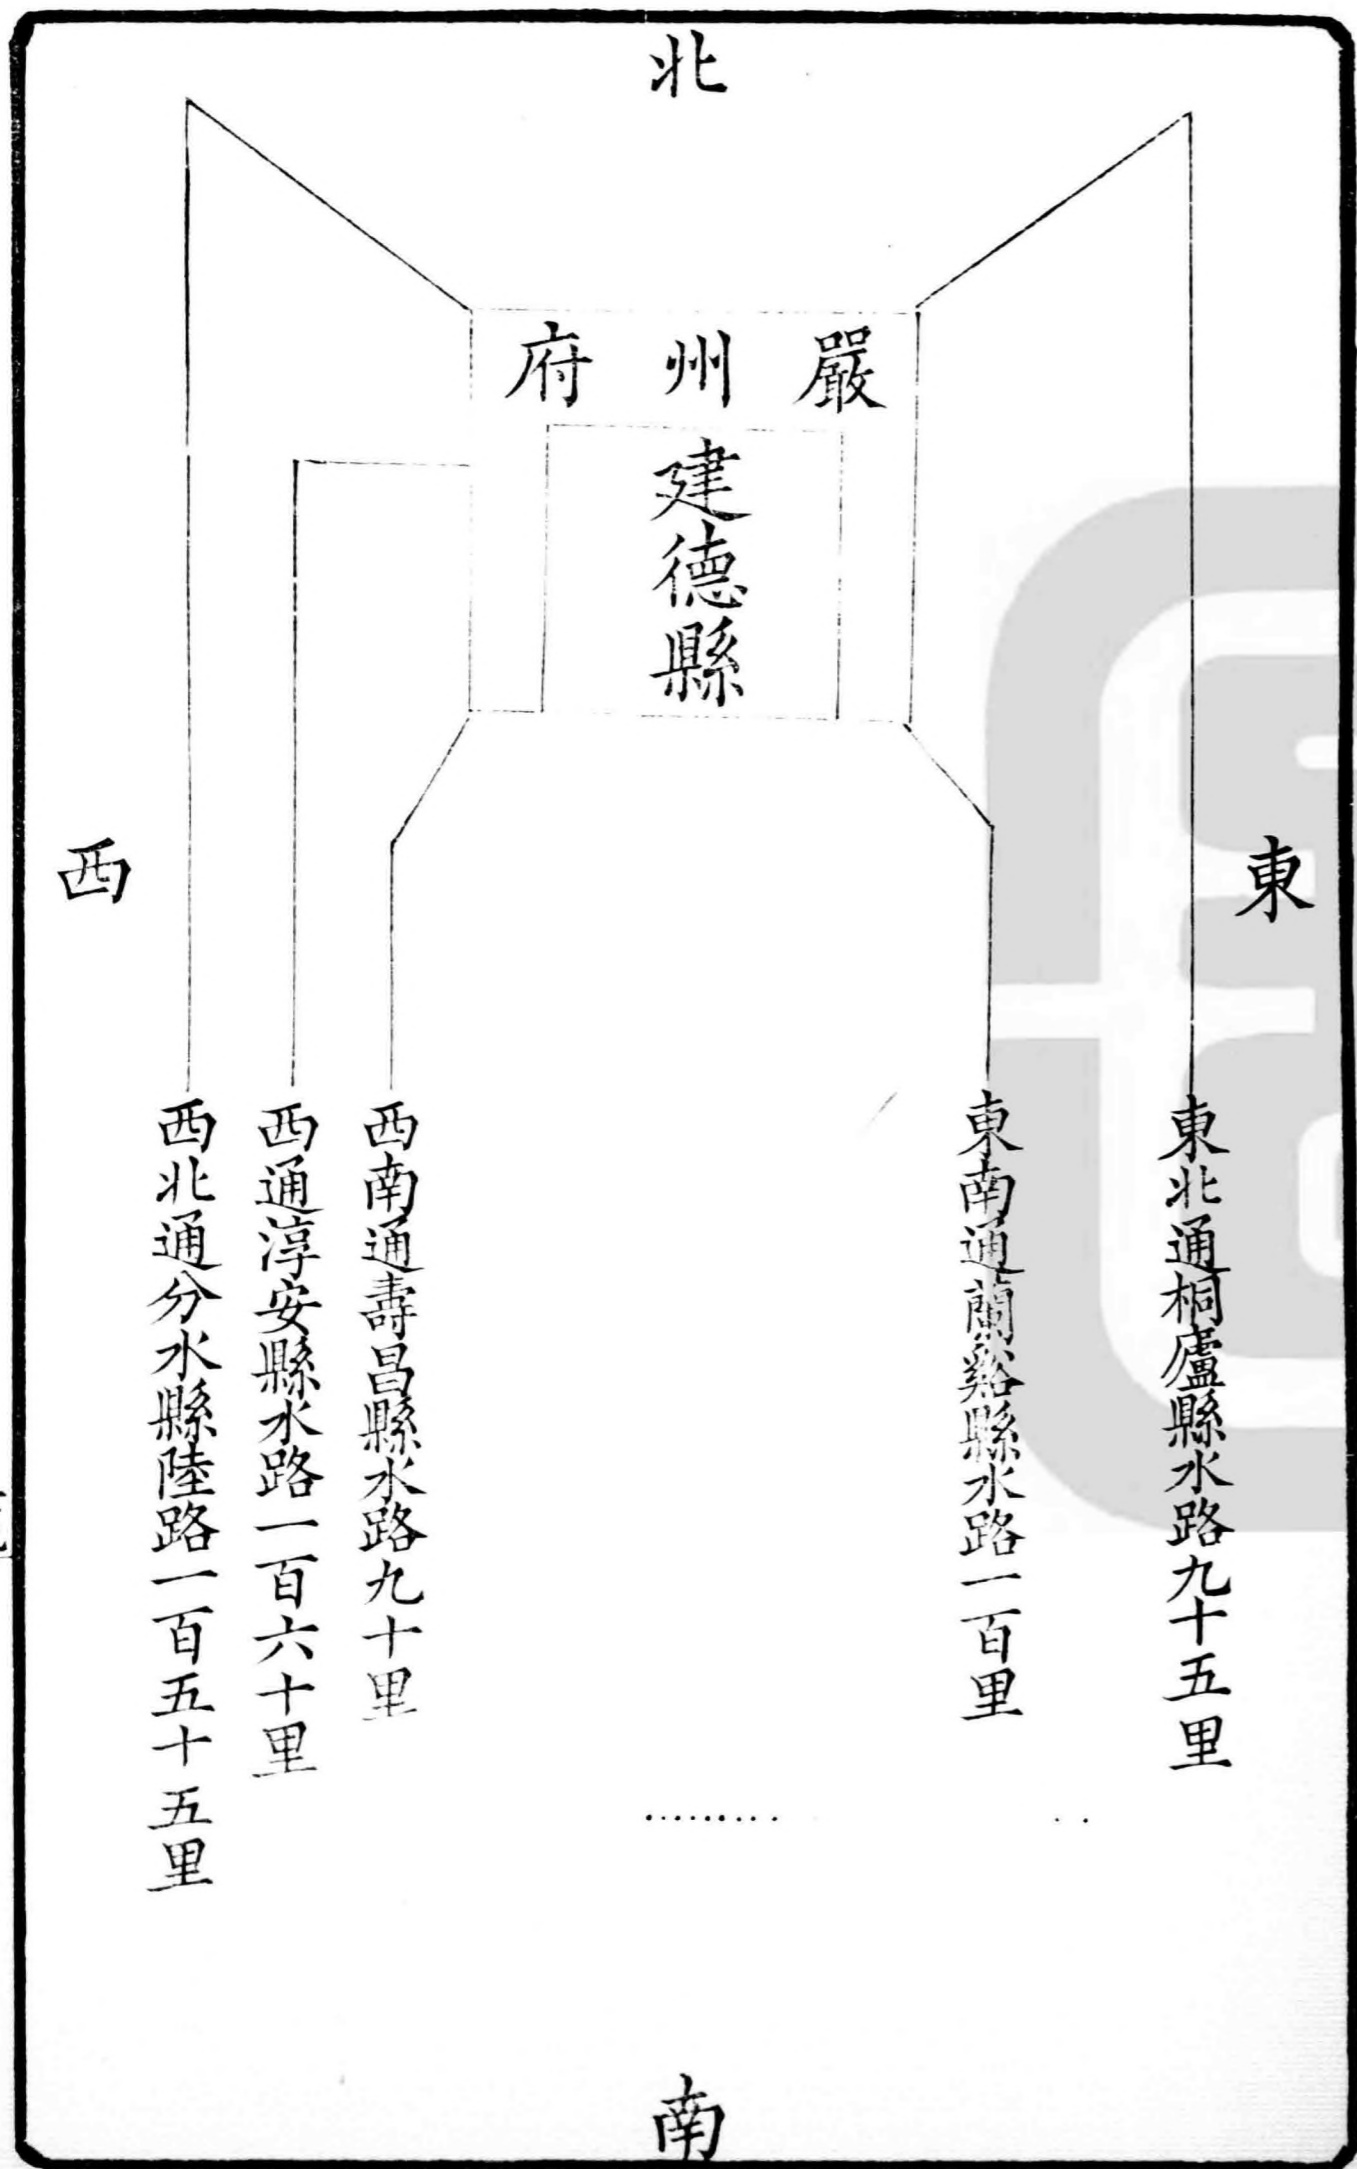 北
嚴州府
建德縣
東
西
東北通桐廬縣水路九十五里
東南通蘭谿縣水路一百里
西南通壽昌縣水路九十里
西通淳安縣水路一百六十里
西北通分水縣陸路一百五十五里
南